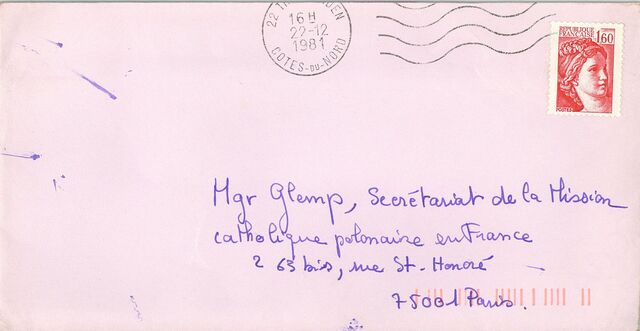 22 T
DEN
16 H
22-12
1981
COTES-DU-NORD
REPUBLIQUE
FRANCAISE
1,60
POSTES
Mgr Glemp, Secrétariat de la Mission
catholique polonaise en France
263 bis, rue St-Honoré
75001 Paris.